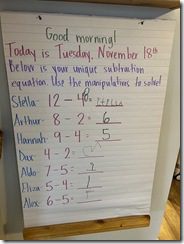 Good morning!
Today is Tuesday, November 18th
Below is your unique subtraction
equation. Use the manipulatives to solve!
Stella: 12 - 4 8
Arthur: 8 - 2 = 6
Hannah: 9 - 4 = 5
Dax: 4 - 2 =
Aldo: 7 - 5 = 2
Eliza: 5 - 4 = 1
Alex: 6 - 5 =